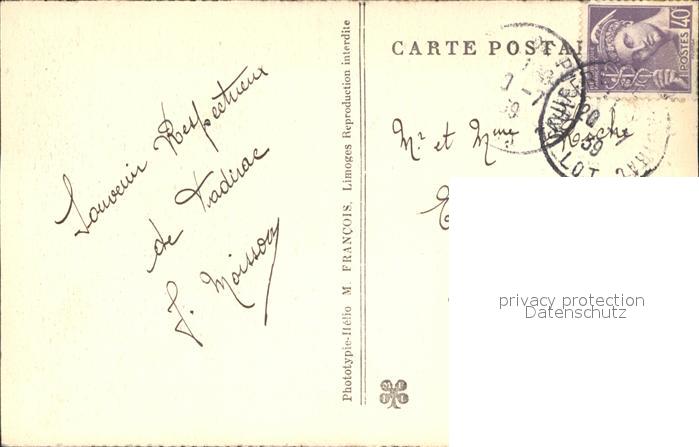 Souvenir Respectueux
de Padirac
J. Moisson
Phototypie-Hélio M. FRANÇOIS, Limoges Reproduction interdite
CARTE POSTAL
40
POSTES
Mr et Mme Roche
PADIRAC
LOT
20
39
privacy protection
Datenschutz